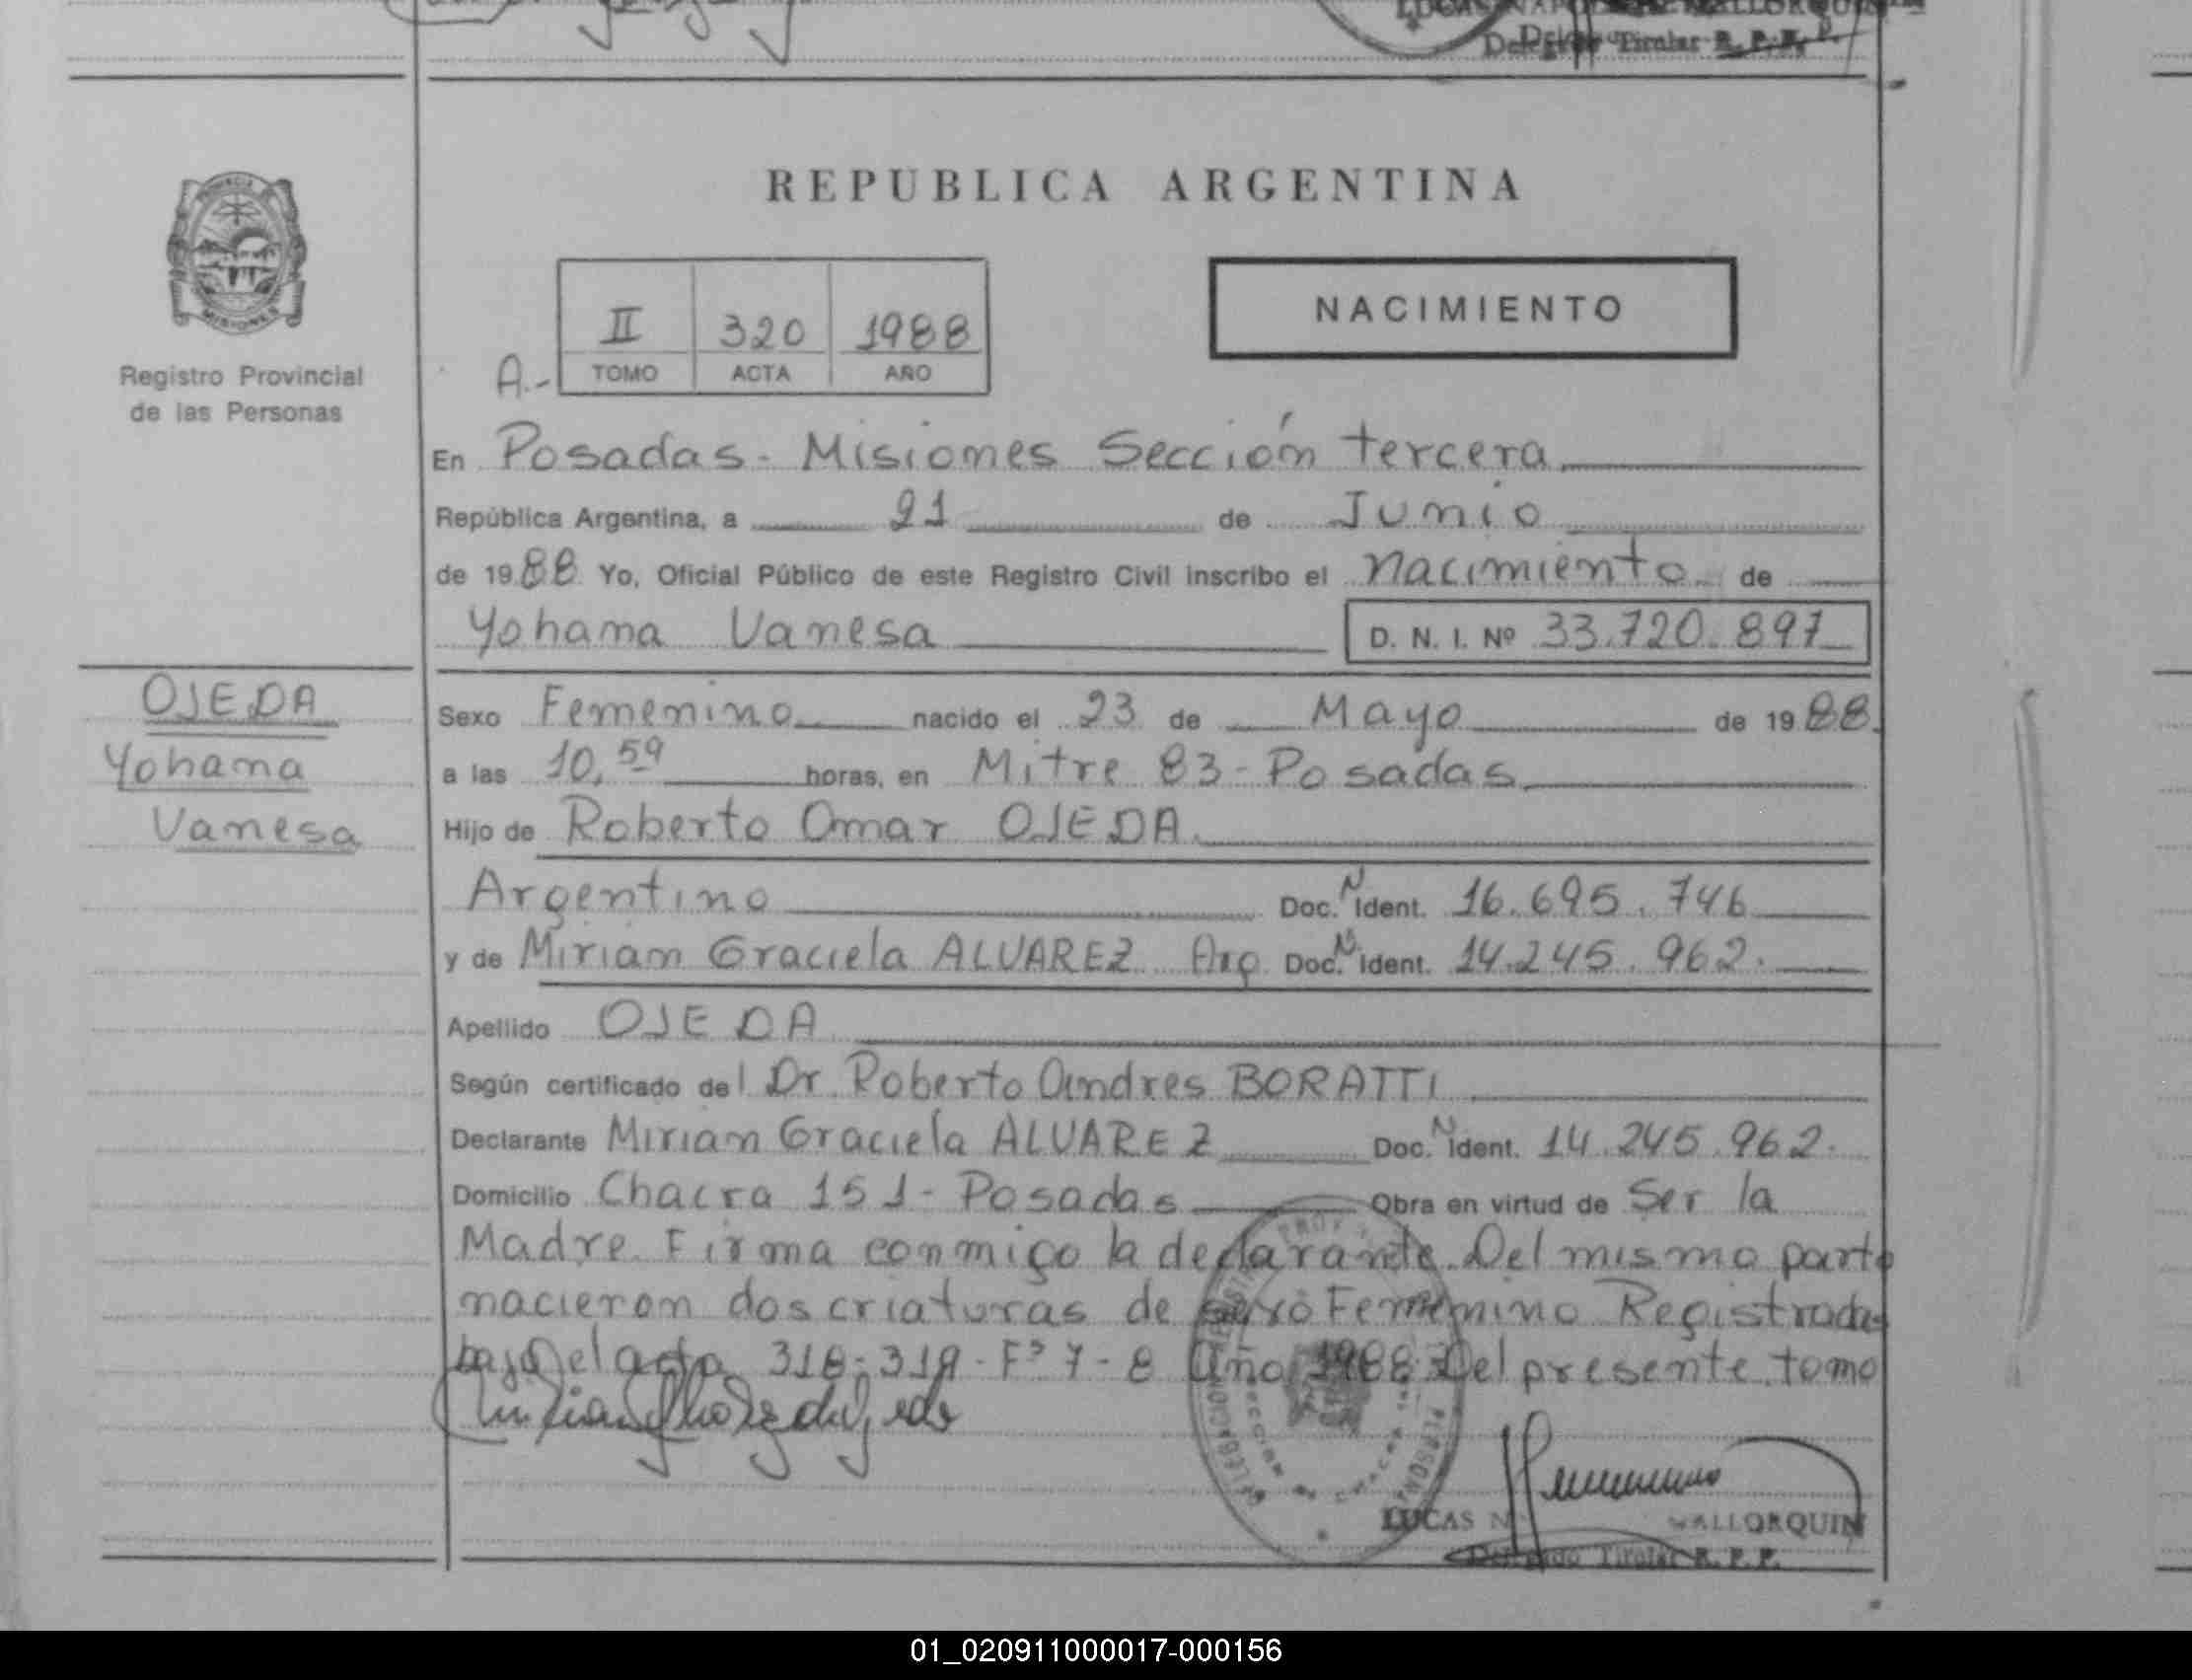 Delegado Titular R. P. P.
REPUBLICA ARGENTINA
II 320 1988
A.- TOMO ACTA AÑO
NACIMIENTO
Registro Provincial
de las Personas
En Posadas - Misiones Sección tercera
República Argentina, a 21 de Junio
de 1988 Yo, Oficial Público de este Registro Civil inscribo el nacimiento de
Yohana Vanesa D. N. I. Nº 33.720.897
OJEDA
Yohana
Vanesa
Sexo Femenino nacido el 23 de Mayo de 1988.
a las 10,59 horas, en Mitre 83 - Posadas
Hijo de Roberto Omar OJEDA.
Argentino Doc. N Ident. 16.695.746
y de Miriam Graciela ALVAREZ Arg Doc. N Ident. 14.245.962.
Apellido OJEDA
Según certificado del Dr. Roberto Andres BORATTI
Declarante Miriam Graciela ALVAREZ Doc. N Ident. 14.245.962.
Domicilio Chacra 151 - Posadas Obra en virtud de Ser la
Madre. Firma conmigo la declarante. Del mismo parto
nacieron dos criaturas de sexo Femenino Registradas
bajo el acta 318-319 - Fs 7-8 Año 1988 Del presente tomo
LUCAS MALLORQUIN
Delegado Titular R. P. P.
01_020911000017-000156